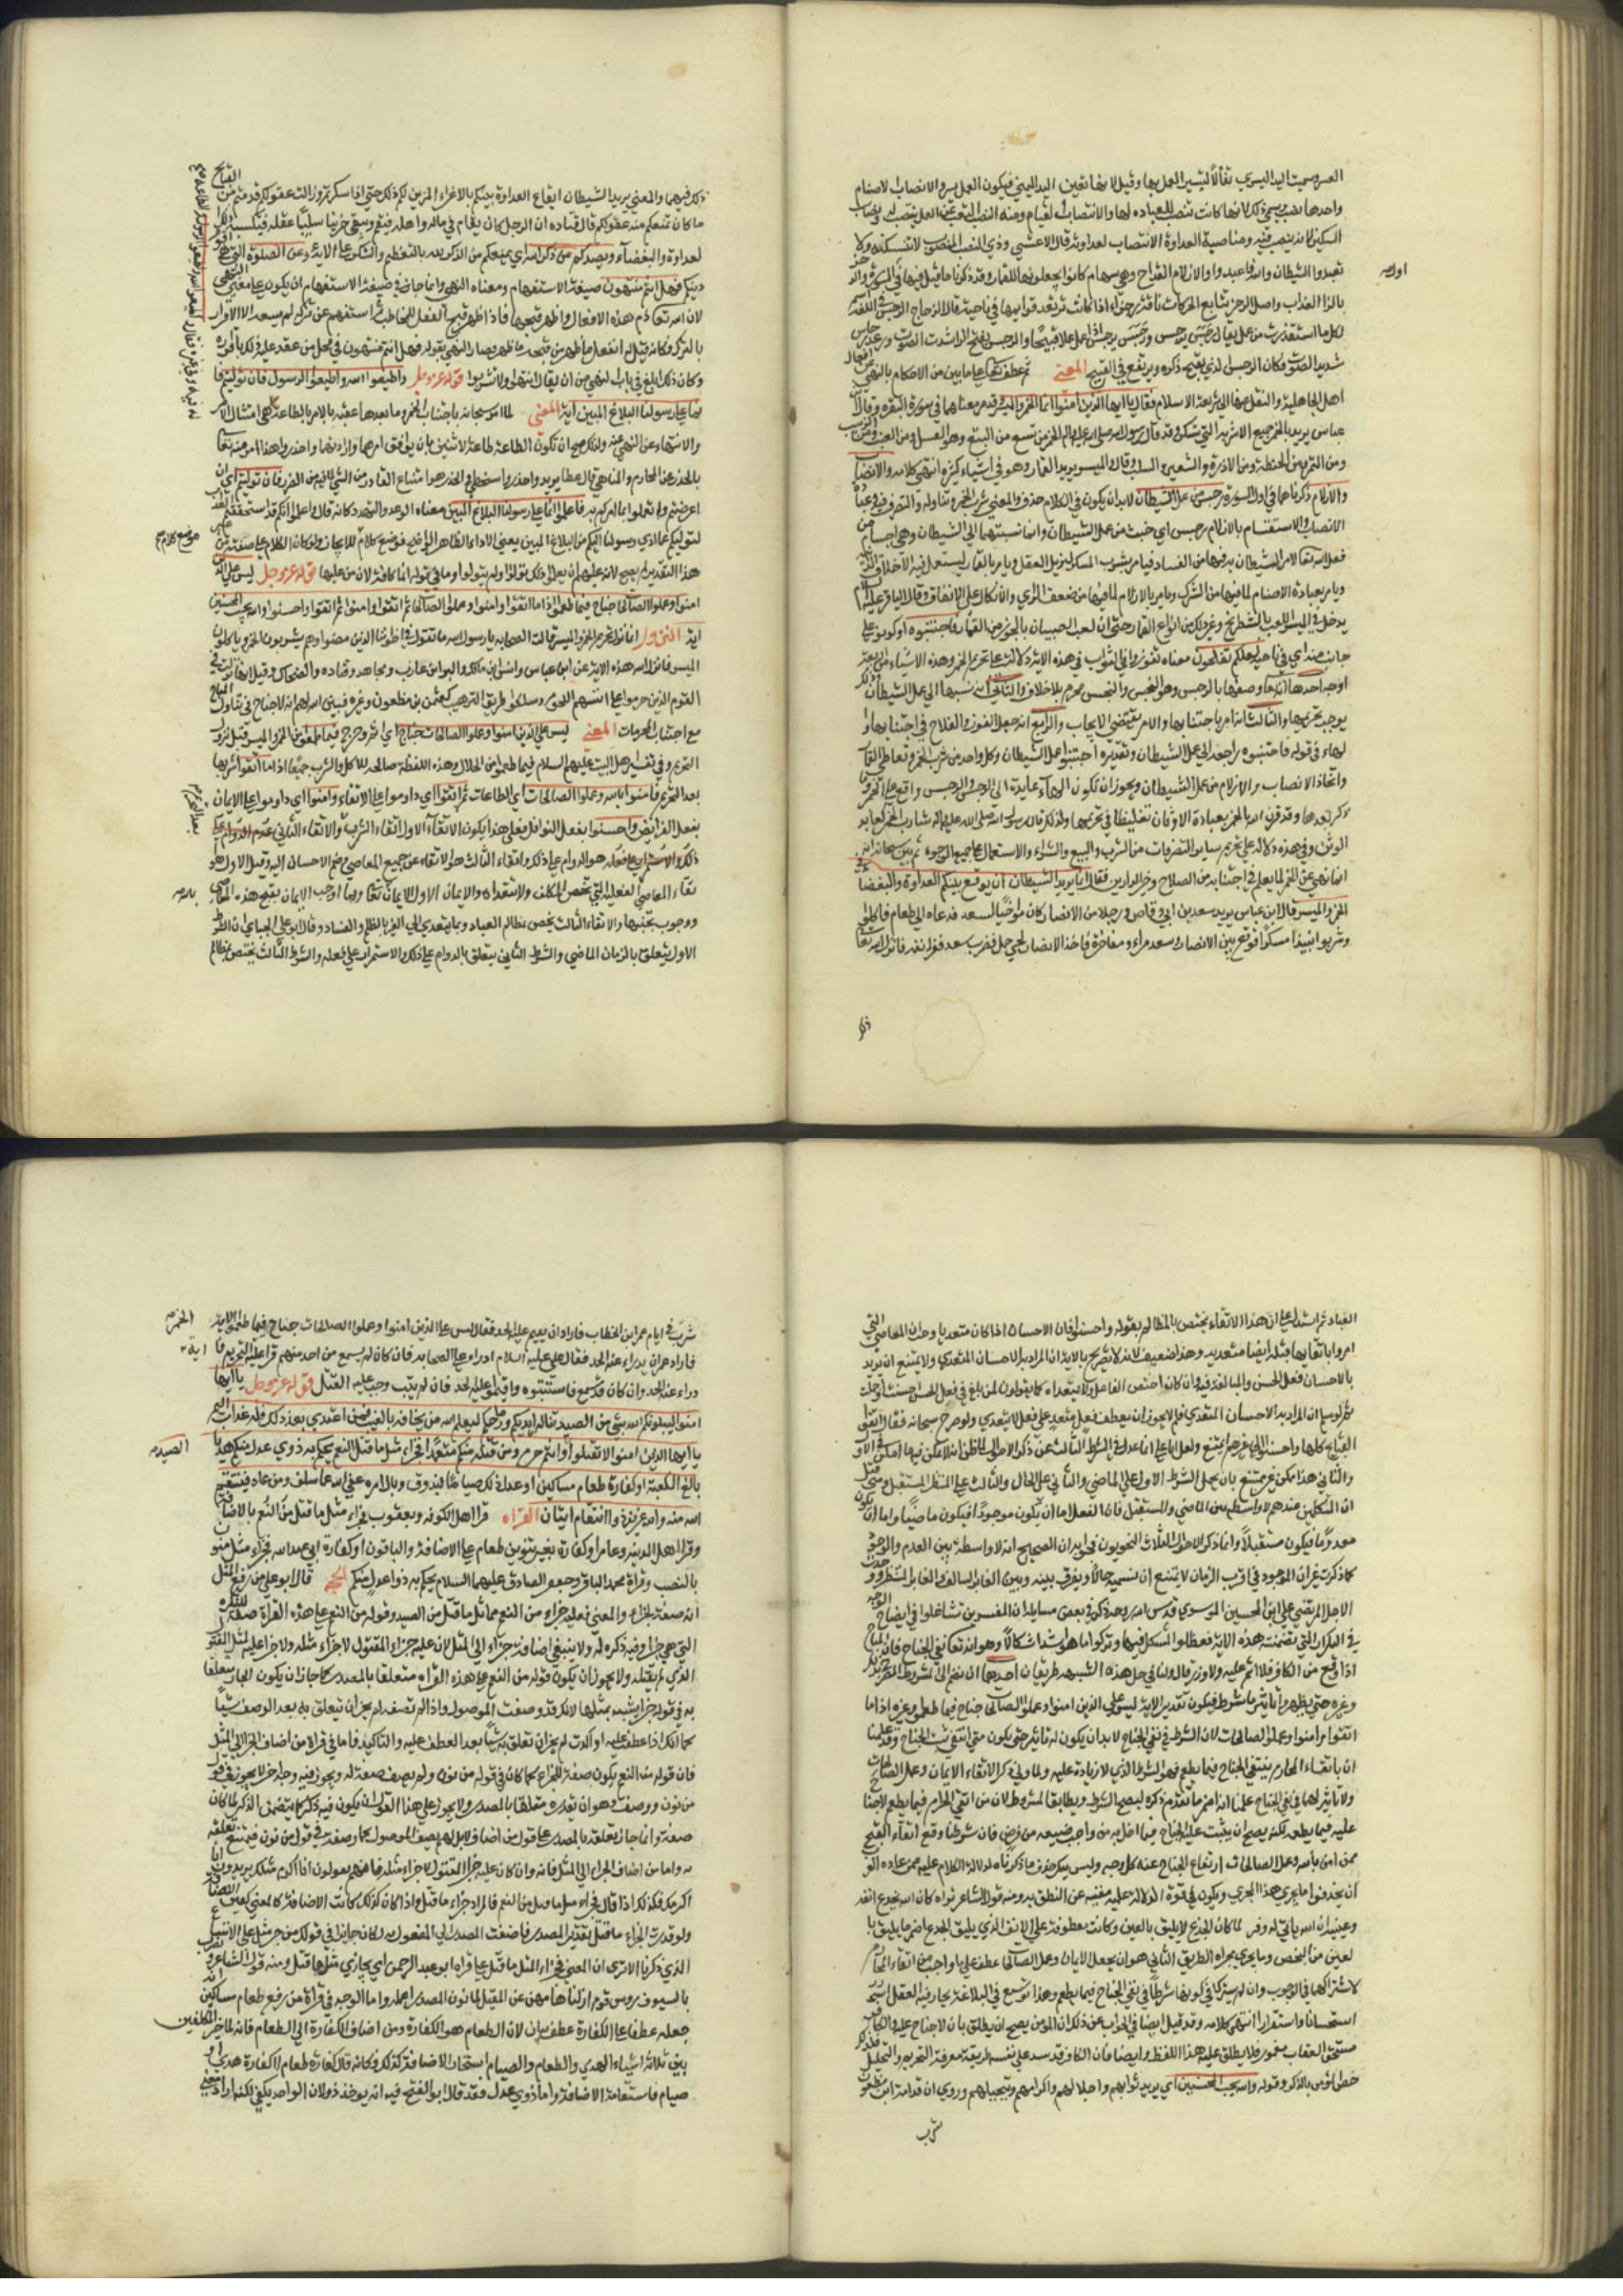 العسر وسميت اليد اليسرى تفألا لتيسر العمل بها وقيل لانها تعين اليد اليمنى فيكون العمل يسر والانصاب الاصنام
واحدها نصب وسمي ذلك لانها كانت تنصب للعبادة لها والانتصاب القيام ومنه النصب التعب عن العمل ينتصب له ونصاب
السكين لانه ينصب فيه ومناصبة العداوة الانتصاب لعداوته قال الاعشى وذي النصب المنصوب لا تنسكنه ولا
تعبدوا الشيطان والله فاعبدوا والازلام القداح وهي سهام كانوا يجعلونها للقمار وقد ذكرنا ما قيل فيها في
اول
بالزا العذاب واصل الرجز تتابع الحركات ناقة رجزاء اذا كانت ترتعد قوائمها في ناحية قال الزجاج الرجس في اللغة اسم
لكل ما استقذرت من عمل يقال رجس يرجس ورجس يرجس اذا عمل عملا قبيحا والرجس بفتح الرا شدت الصوت ورعد رجاس
شديد الصوت فكان الرجس الذي يقبح ذكره ويرتفع في القبيح المعنى ثم عطف تعالى على ما بين من الاحكام بالنهي عن افعال
اهل الجاهلية والنقل عنها الى شريعة الاسلام فقال يا ايها الذين امنوا انما الخمر والميسر وقد مر معناهما في سورة البقرة وقال ابن
عباس يريد بالخمر جميع الاشربة التي تسكر وقد قال رسول الله صلى الله عليه واله الخمر من تسع من البتع وهو العسل ومن العنب ومن الزبيب
ومن التمر ومن الحنطة ومن الذرة والشعير والسلت وقال والميسر يريد القمار وهو في اشياء كثيرة انتهى كلامه والانصاب
والازلام ذكرناهما في اول السورة رجس من عمل الشيطان لابد ان يكون في الكلام حذف والمعنى شرب الخمر وتناوله والتصرف فيه وعبادة
الانصاب والاستقسام بالازلام رجس اي خبث من عمل الشيطان وانما نسبتهما الى الشيطان وهي اجسام من
فعل الله تعالى لامر الشيطان به فيها من الفساد فيامر بشرب المسكر ليزيل العقل ويامر بالقمار ليستعمل فيه الاخلاق الدنية
ويامر بعبادة الاصنام لما فيها من الشرك ويامر بالازلام لما فيها من ضعف الراي والاتكال على الاتفاق وقال الباقر عليه السلام
يدخل في الميسر اللعب بالشطرنج وغير ذلك من انواع القمار حتى ان لعب الصبيان بالجوز من القمار فاجتنبوه اي كونوا على
جانب منه اي في ناحية لعلكم تفلحون معناه لتفوزوا في الثواب في هذه الاية دلالة على تحريم الخمر وهذه الاشياء من اربعة
اوجه احدها انه تعالى وصفها بالرجس وهو النجس والنجس محرم بلا خلاف والثاني انه نسبها الى عمل الشيطان وذلك
يوجب تحريمها والثالث انه امر باجتنابها والامر يقتضي الايجاب والرابع انه جعل الفوز والفلاح في اجتنابها و
الهاء في قوله فاجتنبوه راجعة الى عمل الشيطان وتقديره اجتنبوا عمل الشيطان وكل واحد من شرب الخمر وتعاطي القمار
واتخاذ الانصاب والازلام من عمل الشيطان ويجوز ان تكون الهاء عايدة الى الرجس والرجس واقع على الخمر وما
ذكر بعدها وقد قرن الله الخمر بعبادة الاوثان تغليظا في تحريمها ولذلك قال رسول الله صلى الله عليه واله شارب الخمر كعابد
الوثن وفي هذه دلالة على تحريم ساير التصرفات من الشرب والبيع والشراء والاستعمال على جميع الوجوه ثم بين سبحانه انه
انما نهى عن الخمر لما يعلم في اجتنابه من الصلاح وخير الدارين فقال انما يريد الشيطان ان يوقع بينكم العداوة والبغضاء في
الخمر والميسر قال ابن عباس يريد سعد بن ابي وقاص ورجلا من الانصار كان مواخيا لسعد فدعاه الى الطعام فاكلوا
وشربوا نبيذا مسكرا فوقع بين الانصاري وسعد مراء ومفاخرة فاخذ الانصاري لحي جمل فضرب سعد ففزر انفه فانزل الله تعالى
ذلك
ذلك فيهما والمعنى يريد الشيطان ايقاع العداوة بينكم بالاغراء المزين لكم ذلك حتى اذا سكرتم زالت عقولكم فقدمتم من القبائح
ما كان تمنعكم منه عقولكم قال قتادة ان الرجل كان يقامر في ماله واهله فيقمر ويبقى حزينا سليبا عقله فيكسبه ذلك
العداوة والبغضاء ويصدكم عن ذكر الله اي يمنعكم من الذكر لله بالتعظيم والشكر على الائه وعن الصلوة التي هي قوام
دينكم فهل انتم منتهون صيغته الاستفهام ومعناه النهي وانما جاز في صيغة الاستفهام ان يكون على معنى النهي
لان الله تعالى ذم هذه الافعال واظهر قبحها فاذا ظهر قبح الفعل للمخاطب ثم استفهم عن تركه لم يسعه الا الاقرار
بالترك وكانه قيل له اتفعله بعد ما ظهر من قبحه ما ظهر فصار المنتهى بقوله فهل انتم منتهون في محل من عقد عليه ذلك باقراره
وكان ذلك ابلغ في باب النهي من ان يقال انتهوا ولا تشربوا قوله عز وجل واطيعوا الله واطيعوا الرسول فان توليتم فا
نما على رسولنا البلاغ المبين اية المعنى لما امر سبحانه باجتناب الخمر وما بعدها عقبه بالامر بالطاعة له في امتثال الامر
والانتهاء عن النهي عنه ولذلك صح ان تكون الطاعة طاعة لاثنين بان يوافق امرهما وارادتهما واحذروا هذا امر منه تعالى
بالحذر عن المحارم والمناهي قال عطا يريد واحذروا سخطي والحذر هو امتناع القادر من الشي لما فيه من الضرر فان توليتم اي ان
اعرضتم ولم تعملوا بما امركم به فاعلموا انما على رسولنا البلاغ المبين معناه الوعيد والتهدد كانه قال واعلموا انكم قد استحققتم العقاب
لتوليكم عما ادى رسولنا اليكم من البلاغ المبين يعني الاداء الظاهر الواضح فوضع كلام للايجاز ولو كان الكلام على صيغته من غير
موضع كلام
هذا التقدير لم يصح لان عليهم ان يعلموا ذلك تولوا او لم يتولوا وما في قوله انما كافة لان من عملها قوله عز وجل ليس على الذين
امنوا وعملوا الصالحات جناح فيما طعموا اذا ما اتقوا وامنوا وعملوا الصالحات ثم اتقوا وامنوا ثم اتقوا واحسنوا والله يحب المحسنين
اية النزول لما نزل تحريم الخمر والميسر قالت الصحابة يا رسول الله ما تقول في اخواننا الذين مضوا وهم يشربون الخمر وياكلون
الميسر فانزل الله هذه الاية عن ابن عباس وانس ابن مالك والبراء بن عازب ومجاهد وقتادة والضحاك وقيل انها نزلت في
القوم الذين حرموا على انفسهم اللحوم وسلكوا طريق الترهيب كعثمن بن مظعون وغيره فبين الله لهم انه لا جناح في تناول المباح
مع اجتناب المحرمات المعنى ليس على الذين امنوا وعملوا الصالحات جناح اي اثم وحرج فيما طعموا من الخمر والميسر قبل نزول
التحريم وفي تفسير اهل البيت عليهم السلام فيما طعموا من الحلال وهذه اللفظة صالحة للاكل والشرب جميعا اذا ما اتقوا شربها
بعد التحريم وامنوا بالله وعملوا الصالحات اي الطاعات ثم اتقوا اي داوموا على الاتقاء وامنوا اي داوموا على الايمان
بعد التحريم
بفعل الفرايض واحسنوا بفعل النوافل فعلى هذا يكون الاتقاء الاول اتقاء الشرب والاتقاء الثاني
ذلك والاستمرار على فعله هو الدوام على ذلك واتقاء الثالث هو الاتقاء عن جميع المعاصي وضم الاحسان اليه وقيل الاول هو
تقاء المعاصي العقلية التي تخص المكلف ولا تتعداه والايمان الاول الايمان بالله تعالى وبما اوجب الايمان بقبح هذه المعاصي
بالله
ووجوب تجنبها والاتقاء الثالث يخص مظالم العباد وبما يتعدى الى الغير بالظلم والفساد وقال ابو علي الجبائي ان الشرط
الاول يتعلق بالزمان الماضي والشرط الثاني يتعلق بالدوام على ذلك والاستمرار على فعله والشرط الثالث يختص بمظالم
العباد ثم استدل على ان هذا الاتقاء يختص بالمظالم بقوله واحسنوا فان الاحسان اذا كان متعديا وجب ان المعاصي التي
امروا باتقائها قبله ايضا متعدية وهذا ضعيف لانه لا تصريح بالاية ان المراد به الاحسان المتعدي ولا يمتنع ان يريد
بالاحسان فعل الحسن والمبالغة فيه وان كان اختص الفاعل ولا يتعداه كما يقولون لمن بالغ في فعل الحسن احسنت واجملت
ثم لو سلم ان المراد به الاحسان المتعدي فلم لا يجوز ان يعطف فعل متعد على فعل لا يتعدى ولو صرح سبحانه فقال اتقوا
القبائح كلها واحسنوا الى غيرهم لم يمتنع ولعل ابا علي انما عدل في الشرط الثالث عن ذكر الاحوال لما ظن انه لا يمكن فيها ما امكن في الاول
والثاني هذا ممكن غير ممتنع بان يحمل الشرط الاول على الماضي والثاني على الحال والثالث على المنتظر المستقبل ومتى قيل
ان المتكلمين عندهم لا واسطة بين الماضي والمستقبل فان الفعل اما ان يكون موجودا فيكون ماضيا واما ان يكون
معدوما فيكون مستقبلا وانما ذكر الاحوال الثلاث النحويون فجوابه ان الصحيح انه لا واسطة بين العدم والوجود
كما ذكرت غير ان الموجود في اقرب الزمان لا يمتنع ان نسميه حالا ويفرق بينه وبين الغابر السالف والغابر المنتظر ووجدت
الاجل المرتضى علي ابن الحسين الموسوي قدس الله روحه ذكر في بعض مسايله ان المفسرين تشاغلوا في ايضاح الوجه
في التكرار التي تضمنته هذه الاية فظنوا المشكل فيها وتركوا ما هو اشد اشكالا وهو انه تعالى نفى الجناح فان المباح
اذا وقع من الكافر فلا اثم عليه ولا وزر قال ولنا في حل هذه الشبهه طريقان احدهما ان نضم الى المشروط المصرح بذكره
وغيره حتى يظهر تاثير ما شرط فيكون تقدير الاية ليس على الذين امنوا وعملوا الصالحات جناح فيما طعموا وغيره اذا ما
اتقوا وامنوا وعملوا الصالحات لان الشرط في نفي الجناح لابد ان يكون له تاثير حتى يكون متى انتفى ثبت الجناح وقد علمنا
ان باتقاء المحارم ينتفي الجناح فيما يطعم فهو الشرط الذي لا زيادة عليه ولما ولي ذكر الاتقاء الايمان وعمل الصالحات
ولا تاثير لهما في نفي الجناح علمنا انه اضمر ما تقدم ذكره ليصح الشرط ويطابق المشروط لان من اتقى الحرام فيما يطعم لا جناح
عليه فيما يطعم لكنه يصح ان يثبت عليه الجناح فيما اخل به من واجب ضيعه من فرض فان شرطنا وقع اتقاء القبيح
ممن امن بالله وعمل الصالحات ارتفاع الجناح عنه كل وجه وليس بمنكر حذف ما ذكرناه لدلالة الكلام عليه فمن عادة العرب
ان يحذفوا ما يجري هذا المجرى ويكون في قوة الدلالة عليه مغنيه عن النطق به ومنه قول الشاعر تراه كان الله يجدع انفه
وعينيه ان مولاه ثاب له وفر لما كان الجدع لا يليق بالعين وكانت معطوفة على الانف الذي يليق الجدع اضمر ما يليق با
لعين من البخص وما يجري مجراه الطريق الثاني هو ان يجعل الايمان وعمل الصالحات عطف على ما واجب من اتقاء المحارم
لاشتراكهما في الوجوب وان لم يشتركا في كونهما شرطا في نفي الجناح فيما يطعم وهذا توسع في البلاغة يحار فيه العقل
استحسانا واستغرابا انتهى كلامه وقد قيل ايضا في الجواب عن ذلك ان المؤمن يصح ان يطلق بان لا جناح عليه والكافر
مستحق العقاب مغمور فلا يطلق عليه هذا اللفظ وايضا فان الكافر قد سد على نفسه طريقة معرفة التحريم والتحليل فلذلك
خص المؤمن بالذكر وقوله والله يحب المحسنين اي يريد ثوابهم واجلالهم واكرامهم وتبجيلهم وروي ان قدامة ابن مظعون
شرب
شرب في ايام عمر ابن الخطاب فاراد ان يقيم عليه الحد فقال ليس على الذين امنوا وعملوا الصالحات جناح فيما طعموا الاية
الخمر
فاراد عمر ان يدراء عنه الحد فقال علي عليه السلام اديروه على الصحابة فان كان لم يسمع من احد منهم قرا عليه التحريم فا
اية
دراء عنه الحد وان كان قد سمع فاستتيبوه واقيموا عليه الحد فان لم يتب وجب عليه القتل قوله عز وجل يا ايها الذين
امنوا ليبلونكم الله بشي من الصيد تناله ايديكم ورماحكم ليعلم الله من يخافه بالغيب فمن اعتدى بعد ذلك فله عذاب اليم
يا ايها الذين امنوا لا تقتلوا الصيد وانتم حرم ومن قتله منكم متعمدا فجزاء مثل ما قتل النعم يحكم به ذوي عدل منكم هديا
الصيد
بالغ الكعبة او كفارة طعام مساكين او عدل ذلك صياما ليذوق وبال امره عفى الله عما سلف ومن عاد فينتقم
الله منه والله عزيز ذو انتقام ايتان القراءة قرا اهل الكوفة ويعقوب فجزاء مثل ما قتل من النعم بالاضافة
وقرا اهل المدينة وعامر او كفارة بغير تنوين طعام على الاضافة والباقون او كفارة ابي عبد الله فجزاء مثل منو
بالنصب وقراة محمد الباقر وجعفر الصادق عليهما السلام يحكم به ذوا عدل منكم الحجة قال ابو علي من رفع المثل
انه صفة للجزاء والمعنى فعليه جزاء من النعم مماثل ما قتل من الصيد وقوله من النعم على هذه القراة صفة للنكرة
التي هي جزا وفيه ذكره له ولا ينبغي اضافة جزاء الى المثل لان عليه جزاء المقتول لا جزاء مثله ولا جزا عليه لمثل المقتول
الذي لم يقتله ولا يجوز ان يكون قوله من النعم على هذه القراه متعلقا بالمصدر كما جاز ان يكون الجار متعلقا
به في قوله جزا سيئة بمثلها لانك قد وصفت الموصول واذا لم تصفه لم يجز ان تعلق به بعد الوصف شيئا
كما انك اذا عطفت عليه او اكدت لم يجز ان تعلق به شيئا بعد العطف عليه والتاكيد فاما في قراة من اضاف الجزا الى المثل
فان قوله من النعم يكون صفة للجزاء كما كان في قوله من نون ولم يصف صفة له ويجوز فيه وجه اخر لا يجوز في قول
من نون ووصف وهو ان تقدره متعلقا بالمصدر ولا يجوز على هذا القول ان يكون فيه ذكر كما يتضمن الذكر لما كان
صفة وانما جاز تعلقه بالمصدر على قول من اضاف لانك لم تصف الموصول كما وصفته في قول من نون فيمتنع تعلقه
به واما من اضاف الجزاء الى المثل فانه وان كان عليه جزا المقتول لا جزاء مثله فانهم يقولون انا اكرم مثلك يريدون انا
اكرمك فكذلك اذا قال فجزاء مثل ما قتل من النعم فالمراد جزاء ما قتل واذا كان كذلك كانت الاضافة في المعنى كغير الاضافة
ولو قدرت الجزاء ما قتل تقدير المصدر فاضفت المصدر الى المفعول به لكان جايزا في قول من جر مثل على الاتساع
الذي ذكرنا الا ترى ان المعنى فجزاء مثل ما قتل على قراه ابو عبد الرحمن اي يجازي مثل ما قتل ومنه قول الشاعر
بالسيوف رؤس قوم ازلنا هامهن عن المقيل لما نون المصدر اعمله واما الوجه في قراة من رفع طعام مساكين
جعله عطفا على الكفارة عطف بيان لان الطعام هو الكفارة ومن اضاف الكفارة الى الطعام فانه لما خير المكلفين
بين ثلاثة اشياء الهدي والطعام والصيام استجاز الاضافة لذلك فكانه قال كفارة طعام لا كفارة هدي او
صيام فاستقامة الاضافة واما ذوي عدل فقد قال ابو الفتح فيه انه يوخذ ذو لان الواحد يكفي لكنه اراد معنى